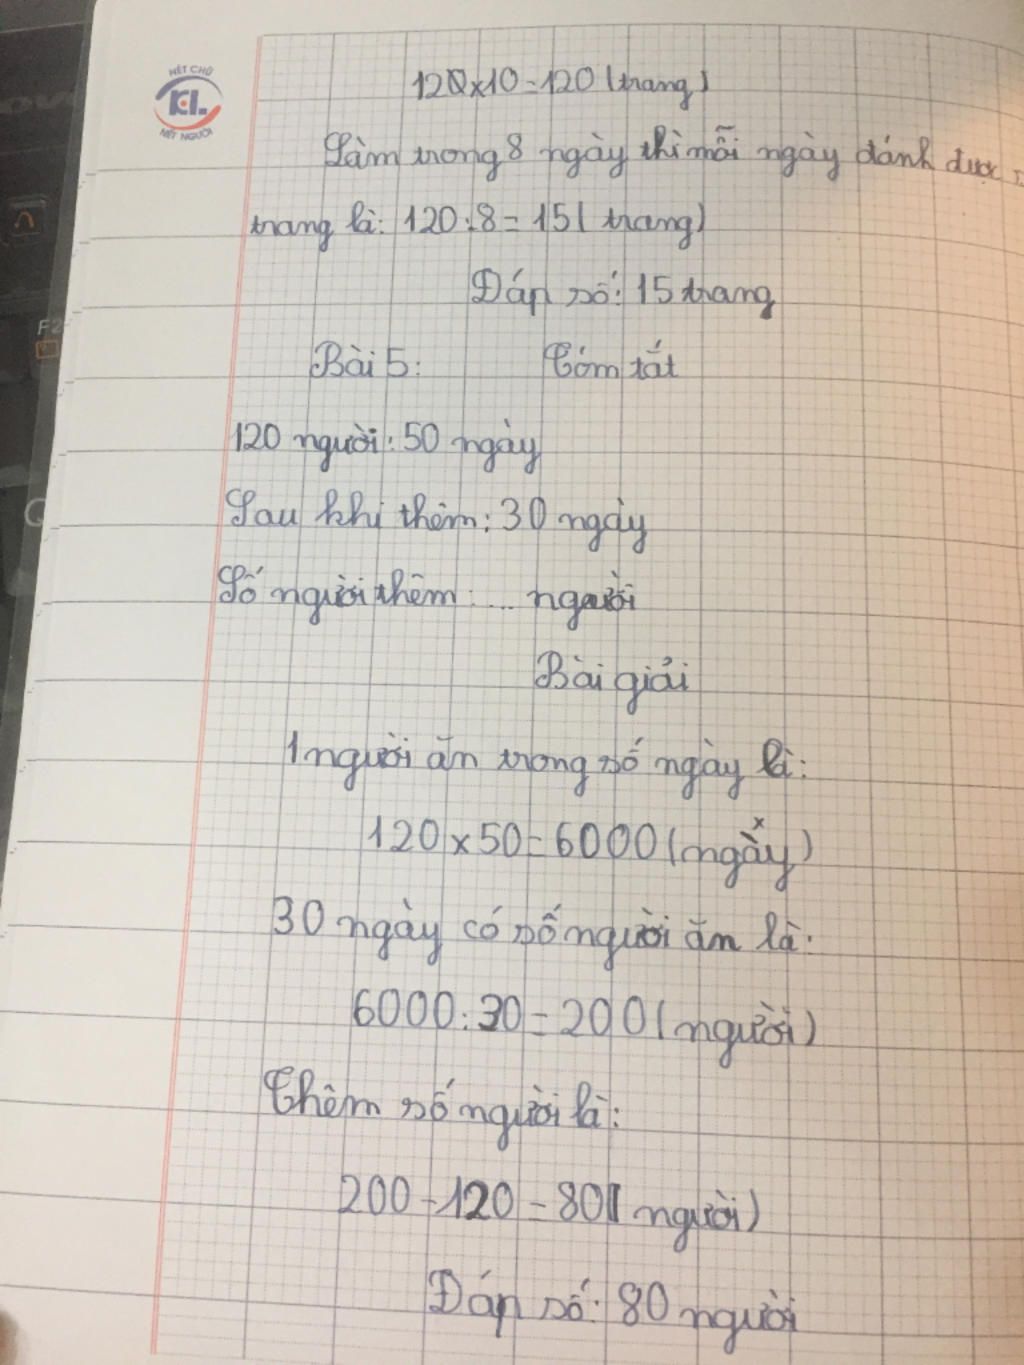 NÉT CHỮ
KL
NẾT NGƯỜI
120x10=120(trang)
Làm trong 8 ngày thì mỗi ngày đánh được
trang là: 120:8=15(trang)
Đáp số: 15 trang
Bài 5: Tóm tắt
120 người: 50 ngày
Sau khi thêm: 30 ngày
Số người thêm: ... người
Bài giải
1 người ăn trong số ngày là:
120x50=6000(ngày)
30 ngày có số người ăn là:
6000:30=200(người)
Thêm số người là:
200-120=80(người)
Đáp số: 80 người
F2